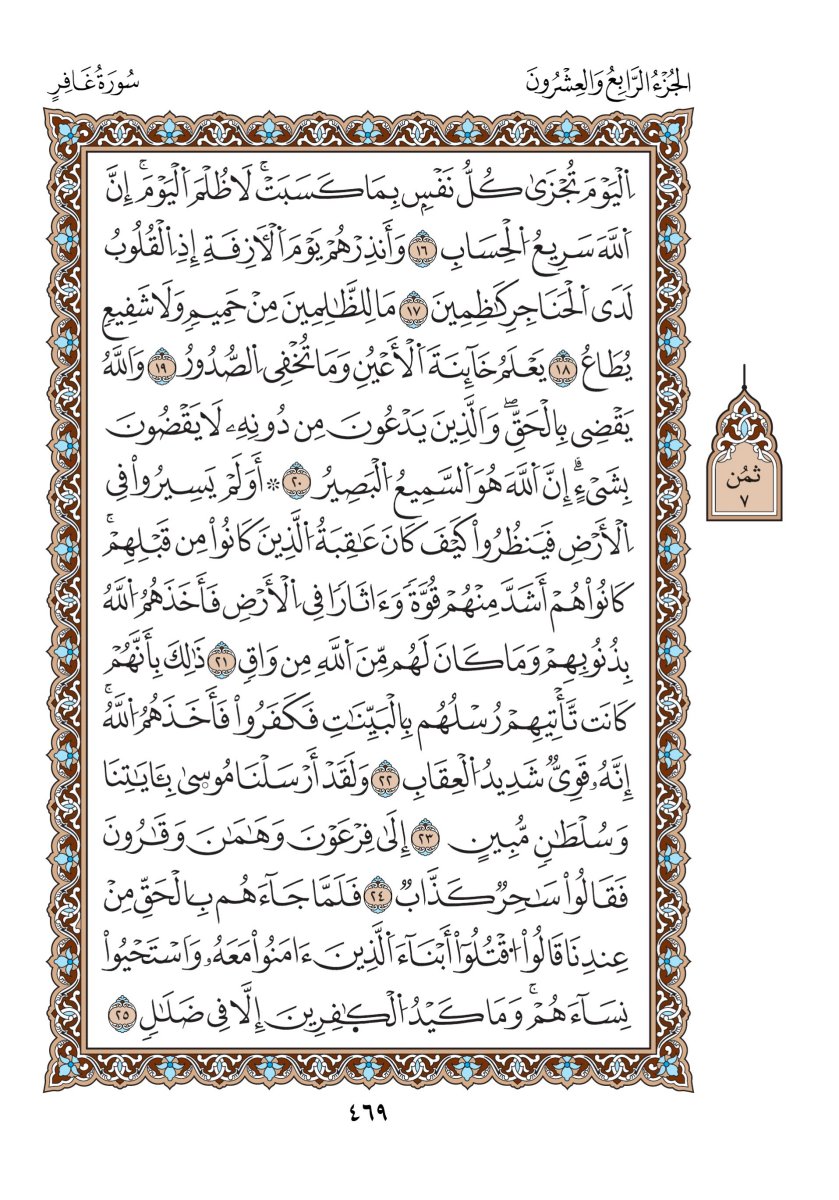 الجُزْءُ الرَّابِعُ وَالعِشْرُونَ
سُورَةُ غَافِرٍ
اِ۬لْيَوْمَ تُجْزَىٰ كُلُّ نَفْسِۭ بِمَا كَسَبَتْۖ لَا ظُلْمَ اَ۬لْيَوْمَۖ إِنَّ
اَ۬للَّهَ سَرِيعُ اُ۬لْحِسَابِ ١٦ وَأَنذِرْهُمْ يَوْمَ اَ۬لْأٓزِفَةِ إِذِ اِ۬لْقُلُوبُ
لَدَى اَ۬لْحَنَاجِرِ كَٰظِمِينَ ١٧ مَا لِلظَّٰلِمِينَ مِنْ حَمِيمٖ وَلَا شَفِيعٖ
يُطَاعُ ١٨ يَعْلَمُ خَآئِنَةَ اَ۬لْأَعْيُنِ وَمَا تُخْفِى اِ۬لصُّدُورُ ١٩ وَاللَّهُ
يَقْضِى بِالْحَقِّۖ وَالَّذِينَ يَدْعُونَ مِن دُونِهِۦ لَا يَقْضُونَ
بِشَىْءٍۗ إِنَّ اَ۬للَّهَ هُوَ اَ۬لسَّمِيعُ اُ۬لْبَصِيرُ ٢٠ ۞ أَوَلَمْ يَسِيرُواْ فِى
اِ۬لْأَرْضِ فَيَنظُرُواْ كَيْفَ كَانَ عَٰقِبَةُ اُ۬لَّذِينَ كَانُواْ مِن قَبْلِهِمْۚ
كَانُواْ هُمْ أَشَدَّ مِنْهُمْ قُوَّةٗ وَءَاثَارٗا فِى اِ۬لْأَرْضِ فَأَخَذَهُمُ اُ۬للَّهُ
بِذُنُوبِهِمْ وَمَا كَانَ لَهُم مِّنَ اَ۬للَّهِ مِن وَاقٖ ٢١ ذَٰلِكَ بِأَنَّهُمْ
كَانَت تَّأْتِيهِمْ رُسْلُهُم بِالْبَيِّنَٰتِ فَكَفَرُواْ فَأَخَذَهُمُ اُ۬للَّهُۚ
إِنَّهُۥ قَوِىّٞ شَدِيدُ اُ۬لْعِقَابِ ٢٢ وَلَقَدْ أَرْسَلْنَا مُوسۭىٰ بِـَٔايَٰتِنَا
وَسُلْطَٰنٖ مُّبِينٍ ٢٣ إِلَىٰ فِرْعَوْنَ وَهَٰمَٰنَ وَقَٰرُونَ
فَقَالُواْ سَٰحِرٞ كَذَّابٞ ٢٤ فَلَمَّا جَآءَهُم بِالْحَقِّ مِنْ
عِندِنَا قَالُواْ اُ۟قْتُلُوٓاْ أَبْنَآءَ اَ۬لَّذِينَ ءَامَنُواْ مَعَهُۥ وَاسْتَحْيُواْ
نِسَآءَهُمْۚ وَمَا كَيْدُ اُ۬لْكٰٜفِرِينَ إِلَّا فِى ضَلَٰلٖ ٢٥
ثمُن
٧
٤٦٩